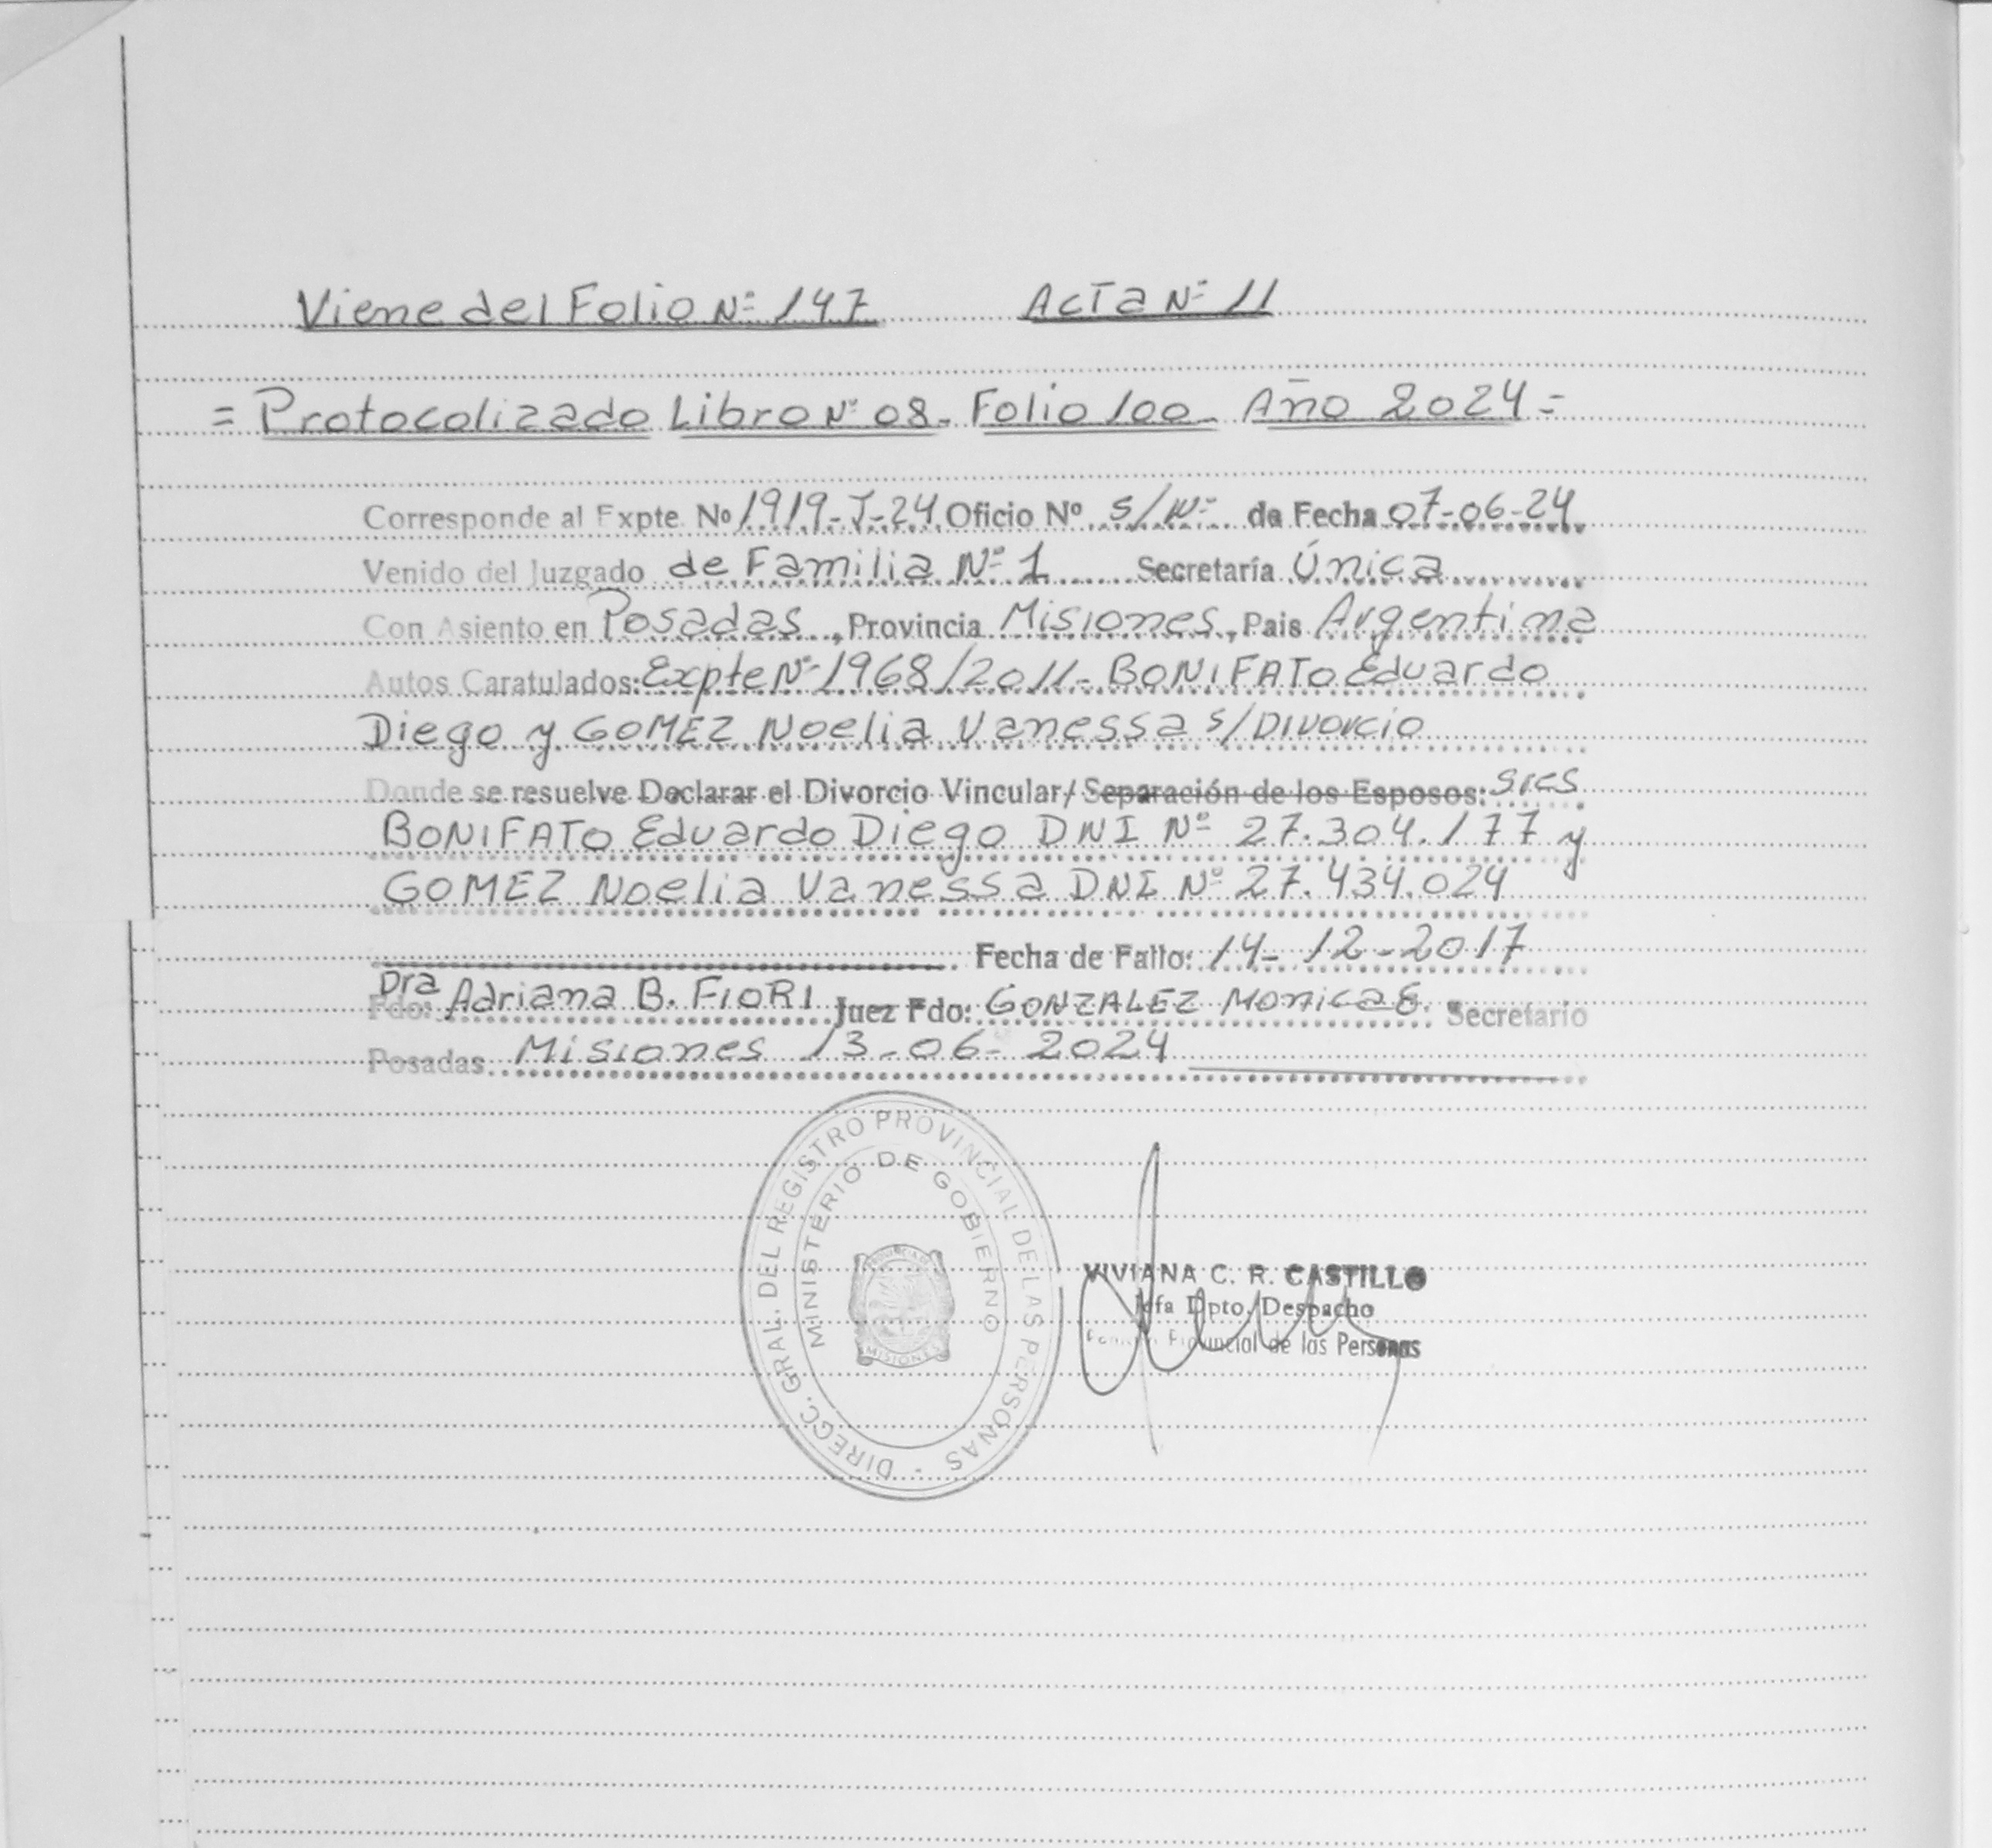 Viene del Folio Nº 147 Acta Nº 11
= Protocolizado Libro Nº 08 - Folio 100 - Año 2024 =
Corresponde al Expte. No 1919-J-24 Oficio Nº s/Nº de Fecha 07-06-24
Venido del Juzgado de Familia Nº 1 Secretaría Única
Con Asiento en Posadas, Provincia Misiones, Pais Argentina
Autos Caratulados: Expte Nº 1968/2011 - BONIFATO Eduardo
Diego y GOMEZ Noelia Vanessa s/Divorcio
Donde se resuelve Declarar el Divorcio Vincular/ Separación de los Esposos: Sres
BONIFATO Eduardo Diego DNI Nº 27.304.177 y
GOMEZ Noelia Vanessa DNI Nº 27.434.024
Fecha de Fallo: 14-12-2017
Fdo: Dra Adriana B. FIORI Juez Fdo: GONZALEZ Monica E. Secretario
Posadas Misiones 13-06-2024
DIRECC. GRAL. DEL REGISTRO PROVINCIAL DE LAS PERSONAS -
MINISTERIO DE GOBIERNO
MISIONES
VIVIANA C. R. CASTILLO
Jefa Dpto. Despacho
Provincial de las Personas